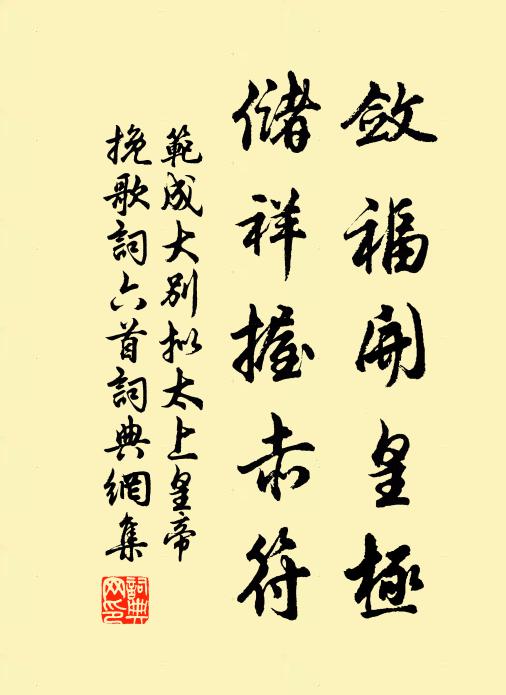 斂福開皇極
儲祥握赤符
範成大別拟太上皇帝
挽歌詞六首詞典網集
詞典网印